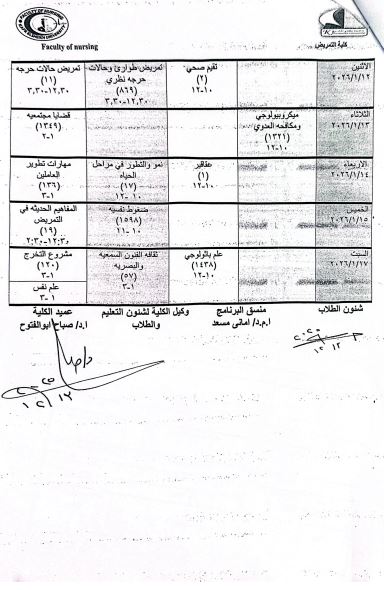 FACULTY OF NURSING
Faculty of nursing
كلية التمريض
الاثنين
٢٠٢٦/١/١٢
تقيم صحي
(٢)
١٠-١٢
تمريض طوارئ وحالات
حرجه نظري
(٨٦٩)
١٢,٣٠-٣,٣٠
تمريض حالات حرجه
(١١)
١٢,٣٠-٣,٣٠
الثلاثاء
٢٠٢٦/١/١٣
ميكروبيولوجي
ومكافحه العدوي
(١٣٢١)
١٠-١٢
قضايا مجتمعيه
(١٣٤٩)
١-٢
الاربعاء
٢٠٢٦/١/١٤
عقاقير
(١)
١٠-١٢
نمو والتطور في مراحل
الحياه
(١٧)
١٠-١٢
مهارات تطوير
العاملين
(١٣٦)
١-٣
الخميس
٢٠٢٦/١/١٥
ضغوط نفسيه
(١٥٩٨)
١٠-١٢
المفاهيم الحديثه في
التمريض
(١٩)
١٢:٣٠-٢:٣٠
السبت
٢٠٢٦/١/١٧
علم باثولوجي
(١٤٣٨)
١٠-١٢
ثقافه الفنون السمعيه
والبصريه
(٥٧)
١-٣
مشروع التخرج
(١٢٠)
١-٣
علم نفس
١-٣
شئون الطلاب
منسق البرنامج
ا.م.د/ اماني مسعد
وكيل الكلية لشئون التعليم
والطلاب
عميد الكلية
ا.د/ صباح ابوالفتوح